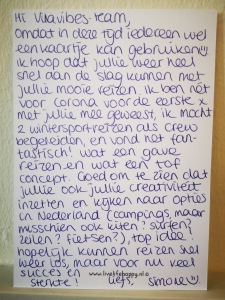 Hi Wavibes-team,
Omdat in deze tijd iedereen wel
een kaartje kan gebruiken!!
Ik hoop dat jullie weer heel
snel aan de slag kunnen met
jullie mooie reizen. Ik ben net
voor corona voor de eerste x
met jullie mee geweest, ik mocht
2 wintersportreizen als crew
begeleiden, en vond het fan-
tastisch! Wat een gave
reizen en wat een tof
concept. Goed om te zien dat
jullie ook jullie creativiteit
inzetten en kijken naar opties
in Nederland (campings, maar
misschien ook kiten? surfen?
zeilen? fietsen?), top idee!
Hopelijk kunnen reizen snel
weer los, maar voor nu veel
succes en www.livelifehappy.nl
sterkte! Liefs, Simone